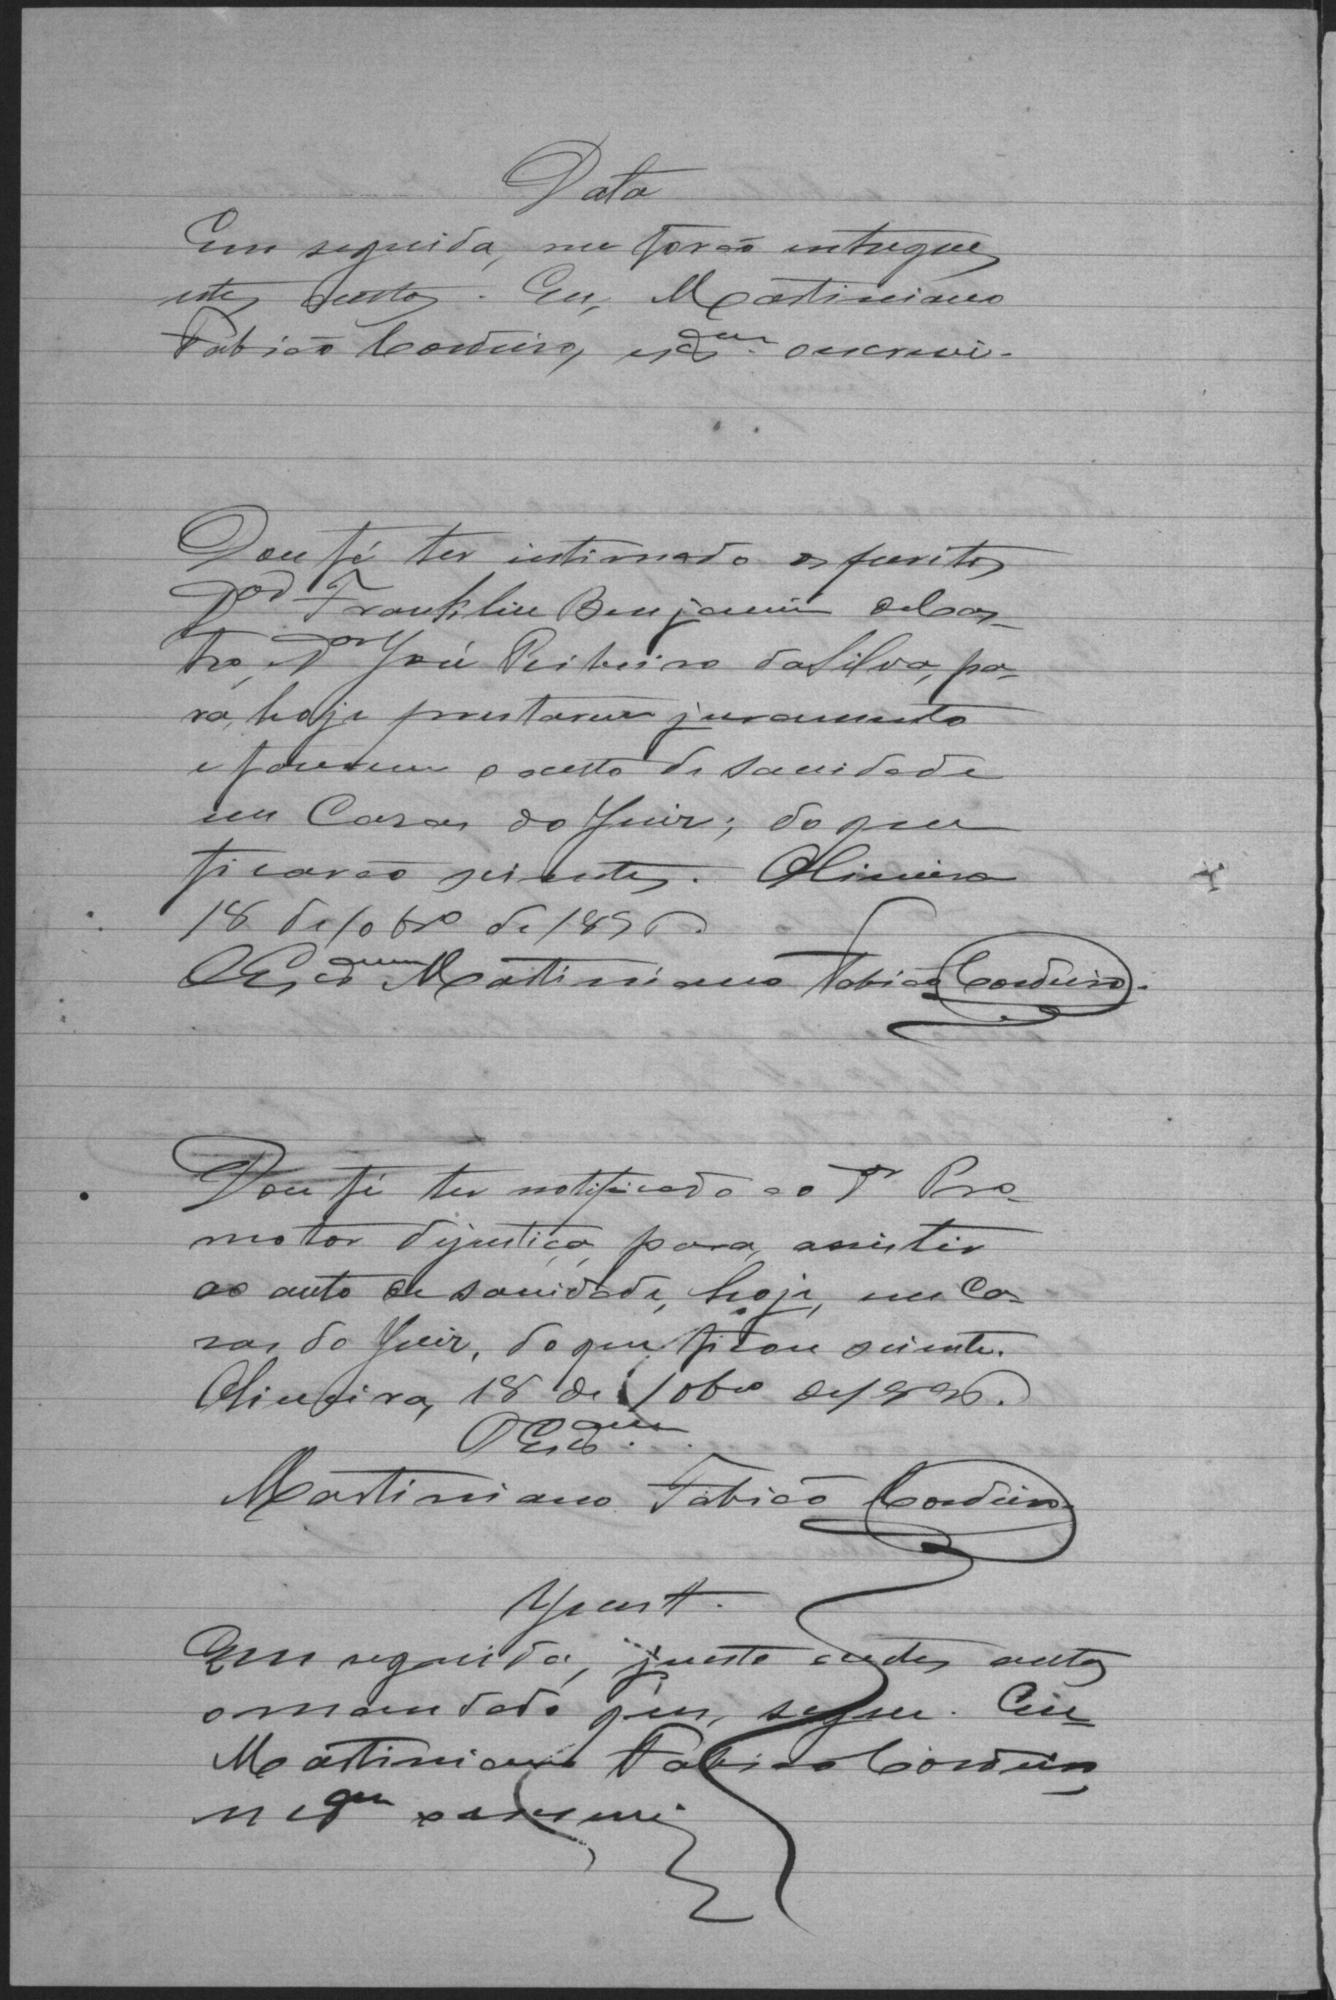 Data
Em seguida, me forão entregues
estes autos. Eu, Martiniano
Fabião Cordeiro, escr.am o escrevi.
Dou fé ter intimado os peritos
Franklin Benjamin de Cas-
tro, e José Ribeiro da Silva, pa-
ra, hoje prestarem juramento
e fazerem o auto de sanidade
em Casas do Juiz; do que
ficarão scientes. Oliveira
18 de 10bro de 1896.
O Escam Martiniano Fabião Cordeiro.
Dou fé ter notificado ao Dr Pro-
motor dejustiça, para, assistir
ao auto de sanidade, hoje, em Ca-
zas do Juiz, do que ficou sciente.
Oliveira, 18 de 10bro de 1896.
O Escam.
Martiniano Fabião Cordeiro.
Em seguida, junto a estes autos
o mandado que, segue. Eu
Martiniano Fabião Cordeiro,
o escrevi